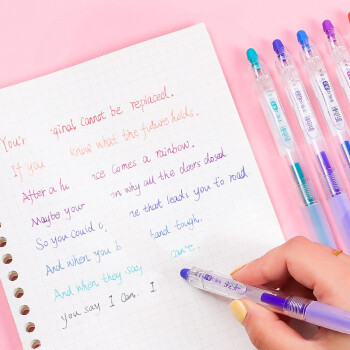 You'r ginal cannot be replaced.
If you know what the future holds.
After a hu ce comes a rainbow.
Maybe your n why all the doors closed
So you could o ne that leads you to road
And when you b tand tough.
And when they say can't.
you say I can. I